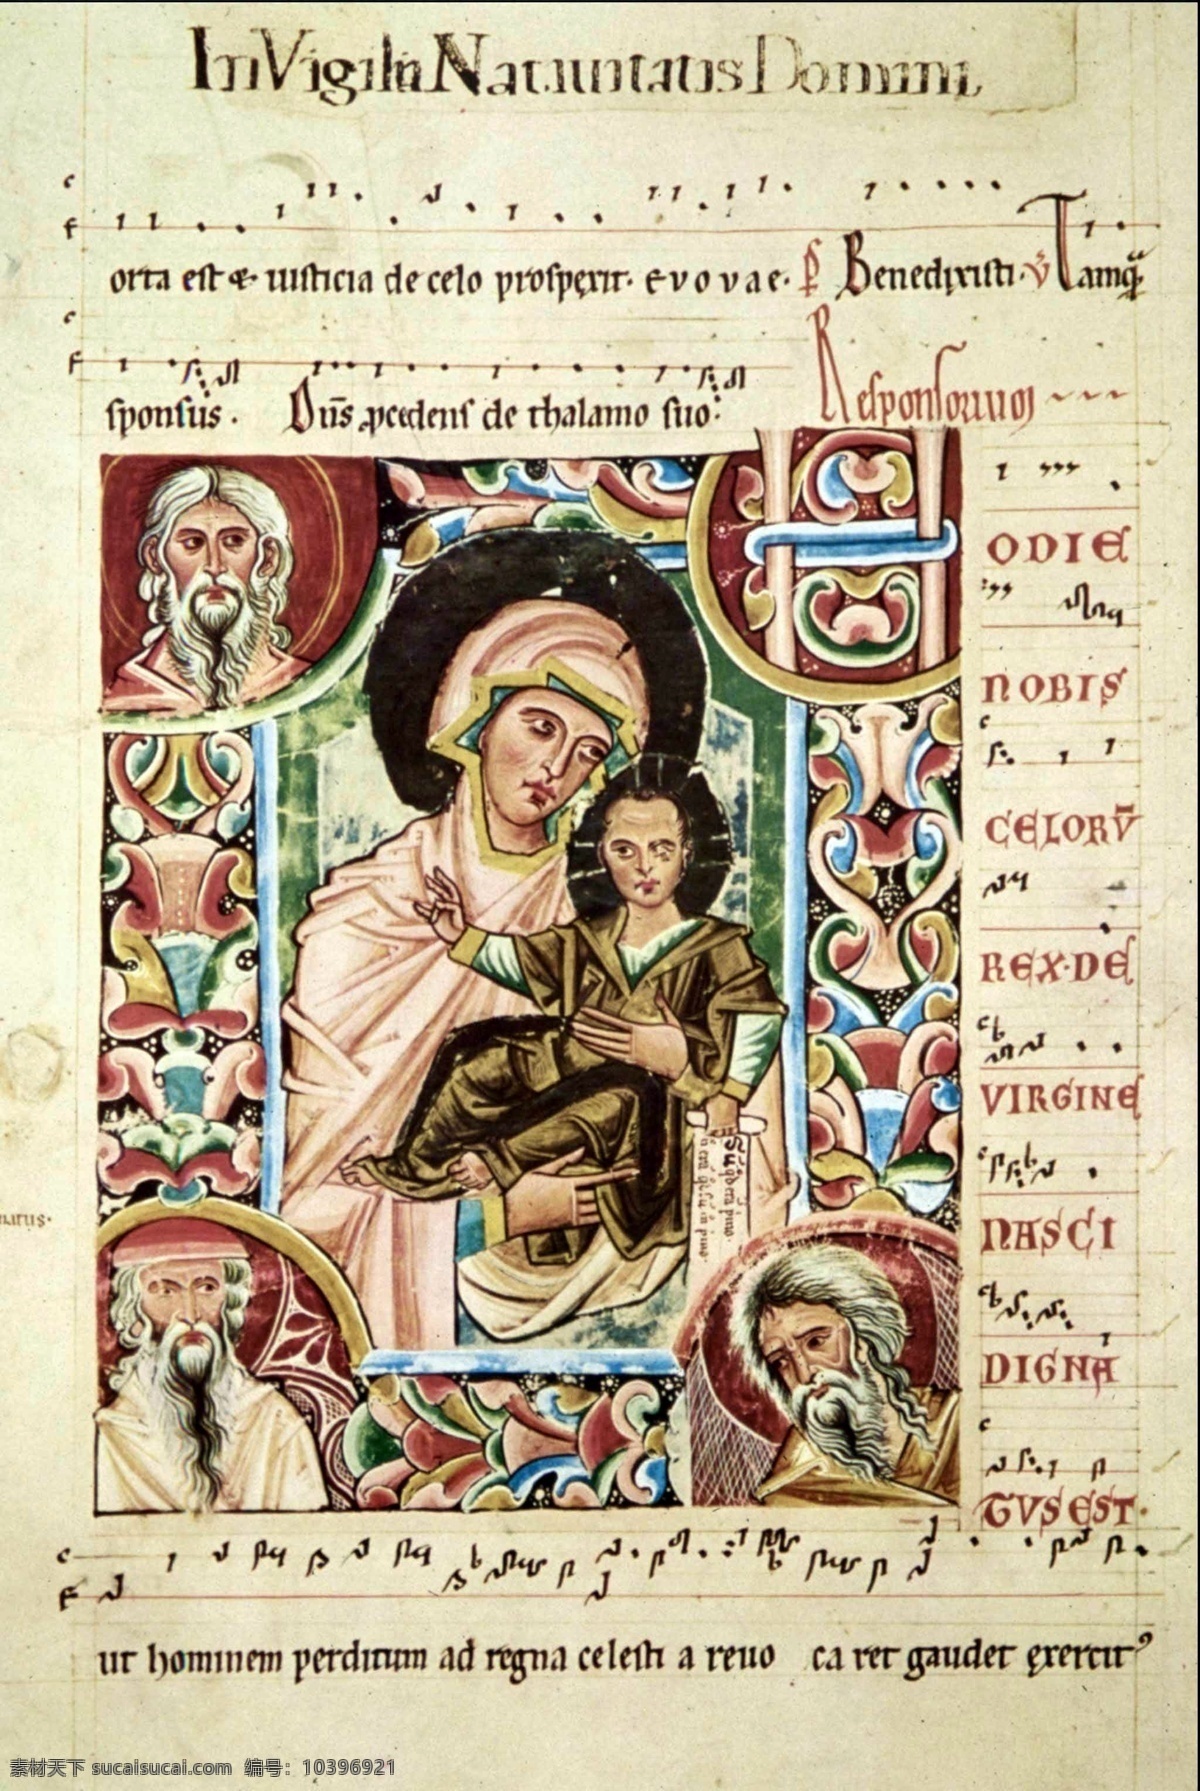 In Vigilia Natiuitatis Domini
orta est & iusticia de celo prospexit. evovae. Benedixisti. Tamq̃
sponsus. Dn̄s p̱cedens de thalamo suo:
Responsorium
ODIE
NOBIS
CELORV̄
REX·DE
VIRGINE
NASCI
DIGNA
TVS EST·
natus·
ut hominem perditum ad regna celesti a reuo ca ret gaudet exercit⁹
素材天下 sucaisucai.com 编号：10396921